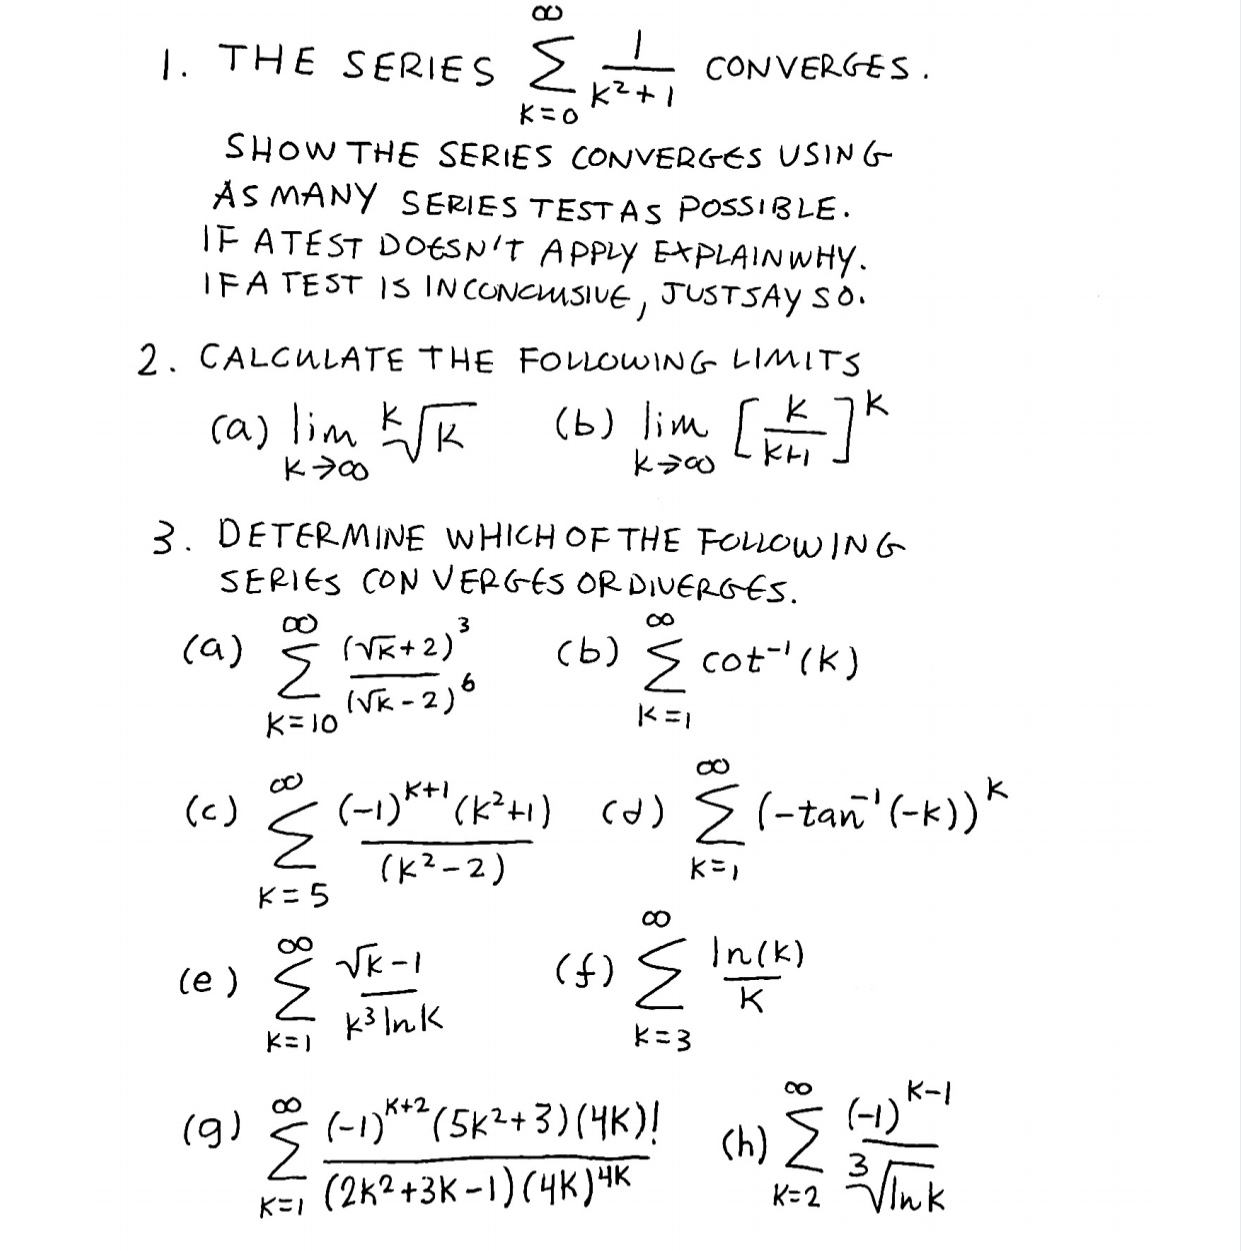 1. THE SERIES ∑_{k=0}^{∞} 1/(k²+1) CONVERGES.
SHOW THE SERIES CONVERGES USING
AS MANY SERIES TEST AS POSSIBLE.
IF A TEST DOESN'T APPLY EXPLAIN WHY.
IF A TEST IS INCONCLUSIVE, JUST SAY SO.
2. CALCULATE THE FOLLOWING LIMITS
(a) lim_{k→∞} ᵏ√k (b) lim_{k→∞} [k/(k+1)]^k
3. DETERMINE WHICH OF THE FOLLOWING
SERIES CONVERGES OR DIVERGES.
(a) ∑_{k=10}^{∞} (√k+2)³/(√k-2)⁶ (b) ∑_{k=1}^{∞} cot⁻¹(k)
(c) ∑_{k=5}^{∞} (-1)^{k+1}(k²+1)/(k²-2) (d) ∑_{k=1}^{∞} (-tan⁻¹(-k))^k
(e) ∑_{k=1}^{∞} (√k-1)/(k³ ln k) (f) ∑_{k=3}^{∞} ln(k)/k
(g) ∑_{k=1}^{∞} (-1)^{k+2}(5k²+3)(4k)!/((2k²+3k-1)(4k)^{4k}) (h) ∑_{k=2}^{∞} (-1)^{k-1}/³√(ln k)